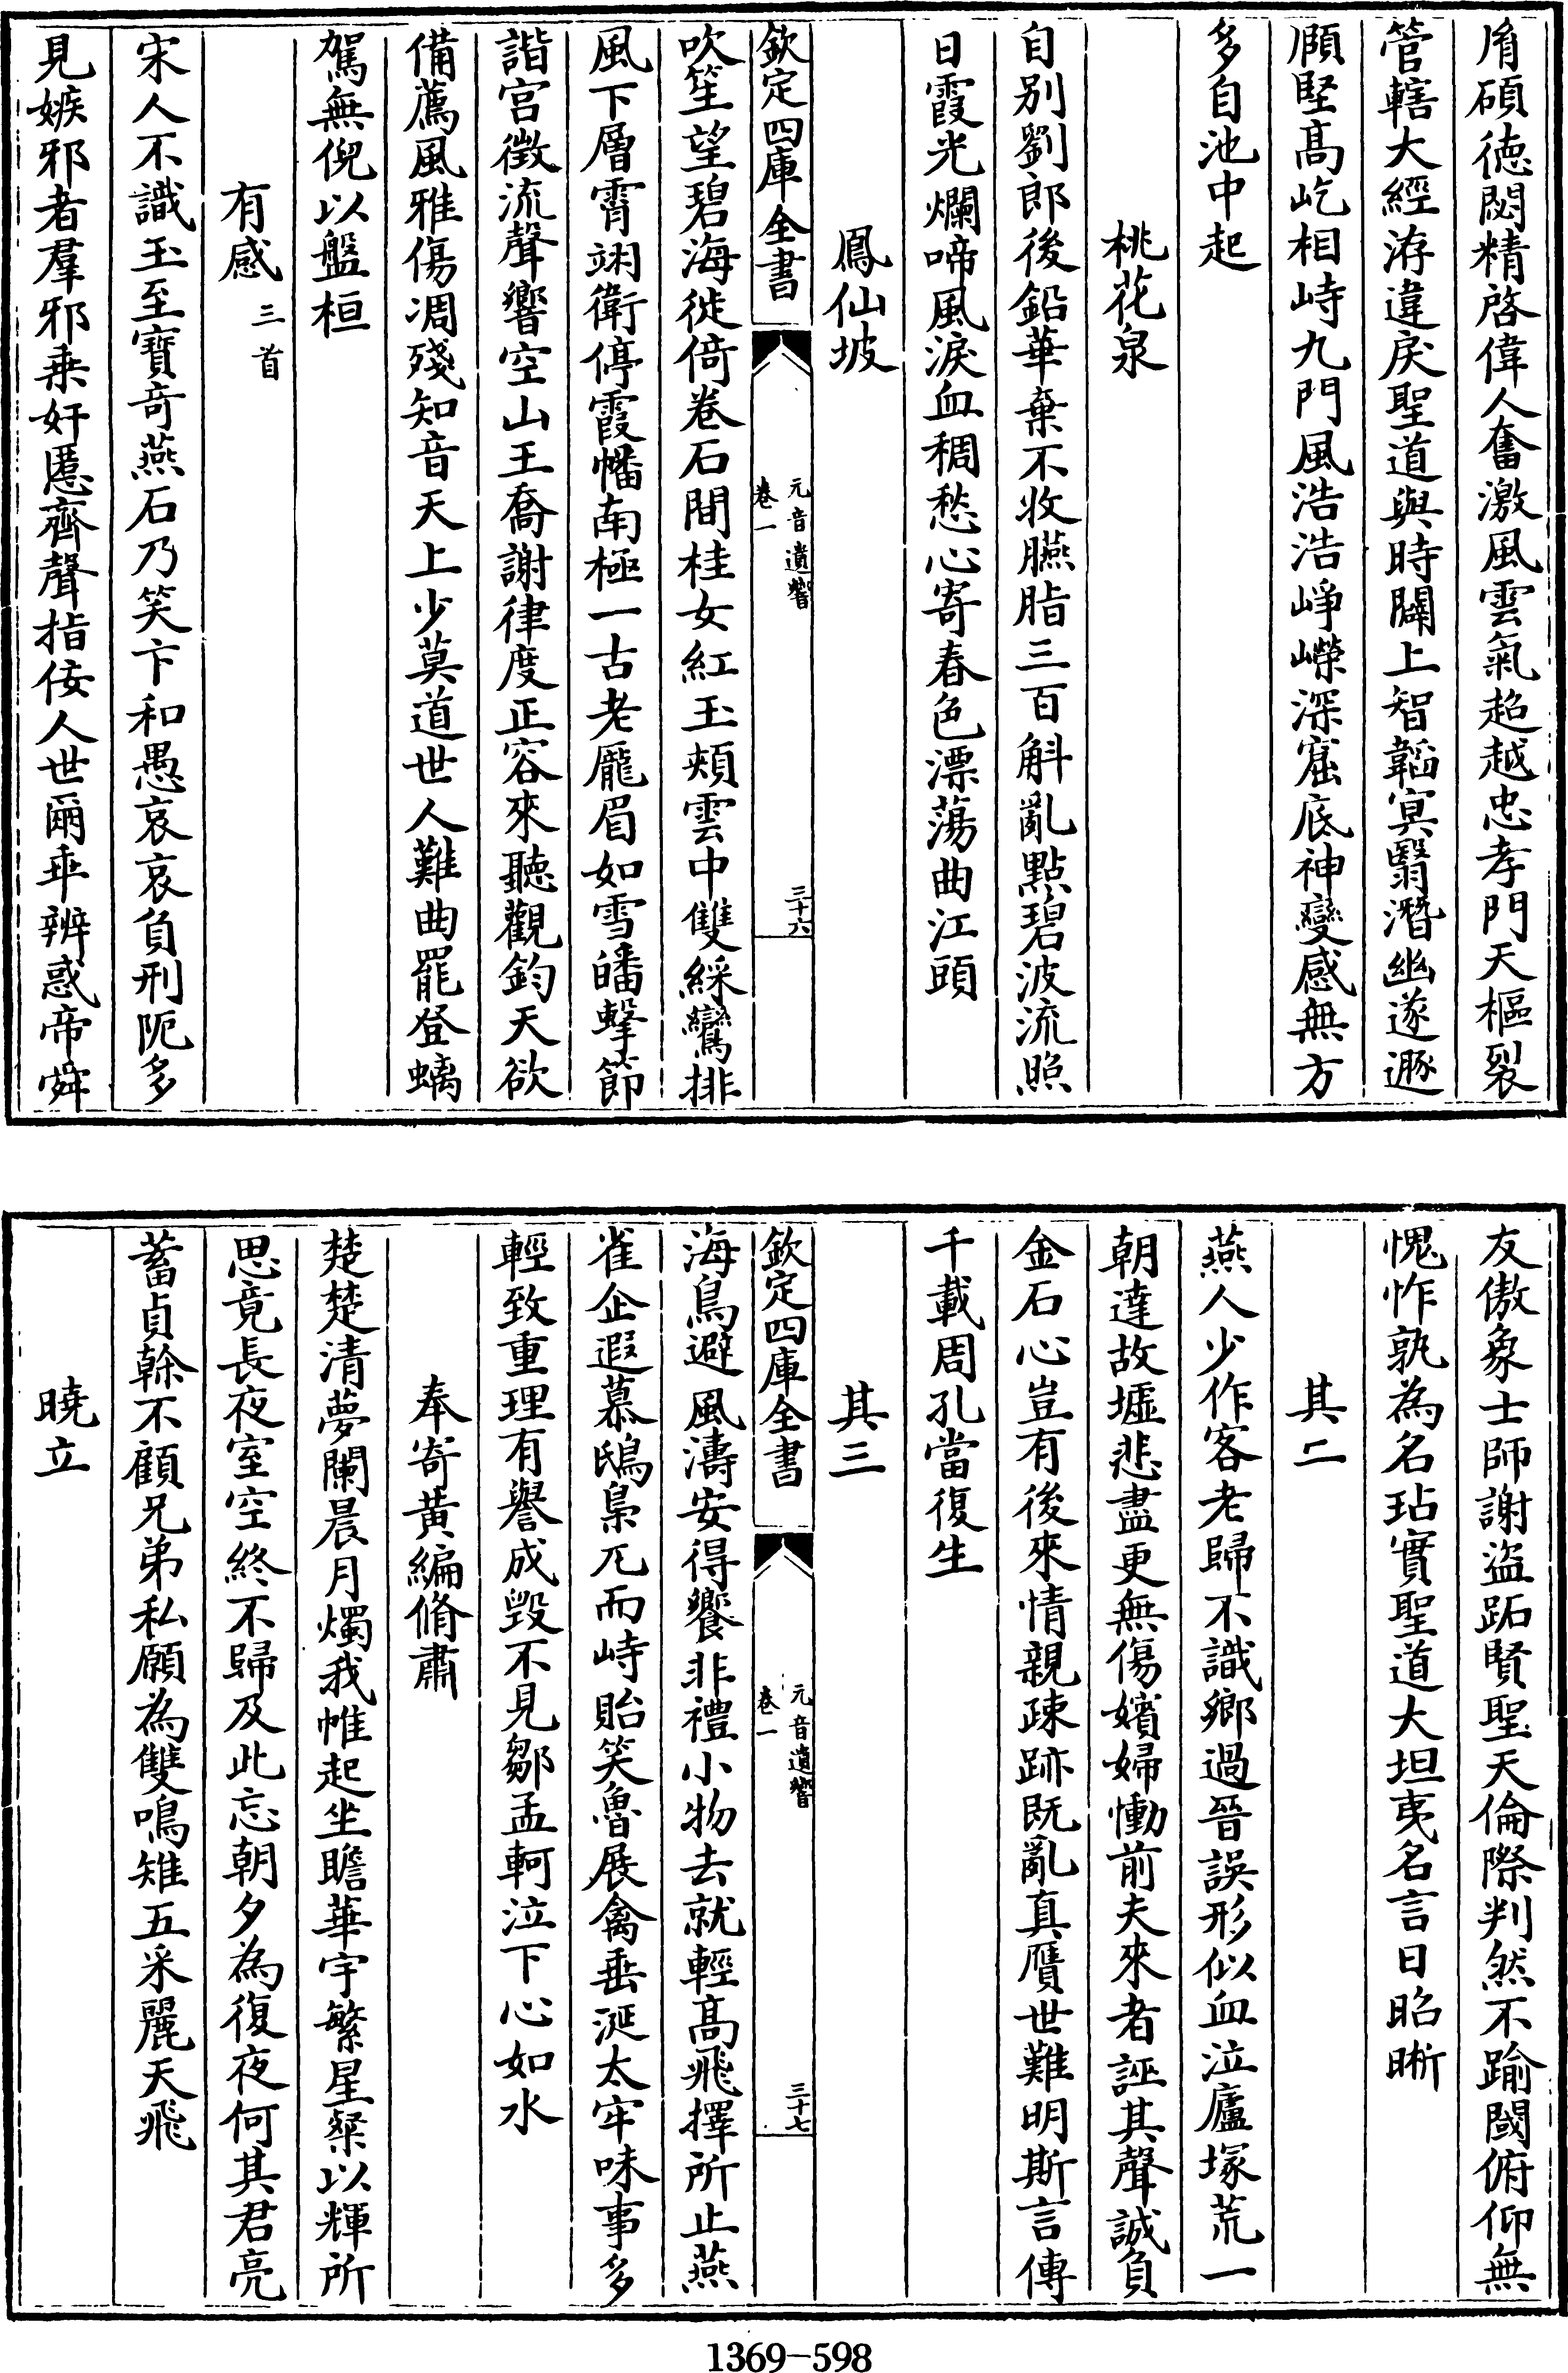 脩碩徳閟精啓偉人奮激風雲氣超越忠孝門天樞裂
管轄大經洊違戾聖道與時闢上智韜冥翳潛幽遂遯
願堅髙屹相峙九門風浩浩崢嶸深窟底神變感無方
多自池中起
桃花泉
自別劉郎後鉛華棄不收臙脂三百斛亂點碧波流照
日霞光爛啼風淚血稠愁心寄春色漂蕩曲江頭
鳳仙坡
欽定四庫全書
元音遺響
卷一
三十六
吹笙望碧海徙倚卷石間桂女紅玉頰雲中雙綵鸞排
風下層霄翊衛停霞幡南極一古老龎眉如雪皤擊節
諧宫徴流聲響空山王喬謝律度正容來聽觀鈞天欲
備薦風雅傷凋殘知音天上少莫道世人難曲罷登螭
駕無倪以盤桓
有感三首
宋人不識玉至寶竒燕石乃笑卞和愚哀哀負刑阨多
見嫉邪者羣邪乗奸慝齊聲指佞人世爾乖辨惑帝舜
友傲象士師謝盜跖賢聖天倫際判然不踰閾俯仰無
愧怍孰為名玷實聖道大坦夷名言日昭晰
其二
燕人少作客老歸不識鄉過晉誤形似血泣廬塚荒一
朝達故墟悲盡更無傷嬪婦慟前夫來者誣其聲誠負
金石心豈有後來情親疎跡既亂真贗世難明斯言傳
千載周孔當復生
其三
欽定四庫全書
元音遺響
卷一
三十七
海鳥避風濤安得饗非禮小物去就輕髙飛擇所止燕
雀企遐慕鴟梟兀而峙貽笑魯展禽垂涎太牢味事多
輕致重理有譽成毀不見鄒孟軻泣下心如水
奉寄黄編脩肅
楚楚清夢闌晨月燭我帷起坐瞻華宇繁星粲以輝所
思竟長夜室空終不歸及此忘朝夕為復夜何其君亮
蓄貞榦不顧兄弟私願為雙鳴雉五采麗天飛
曉立
1369-598